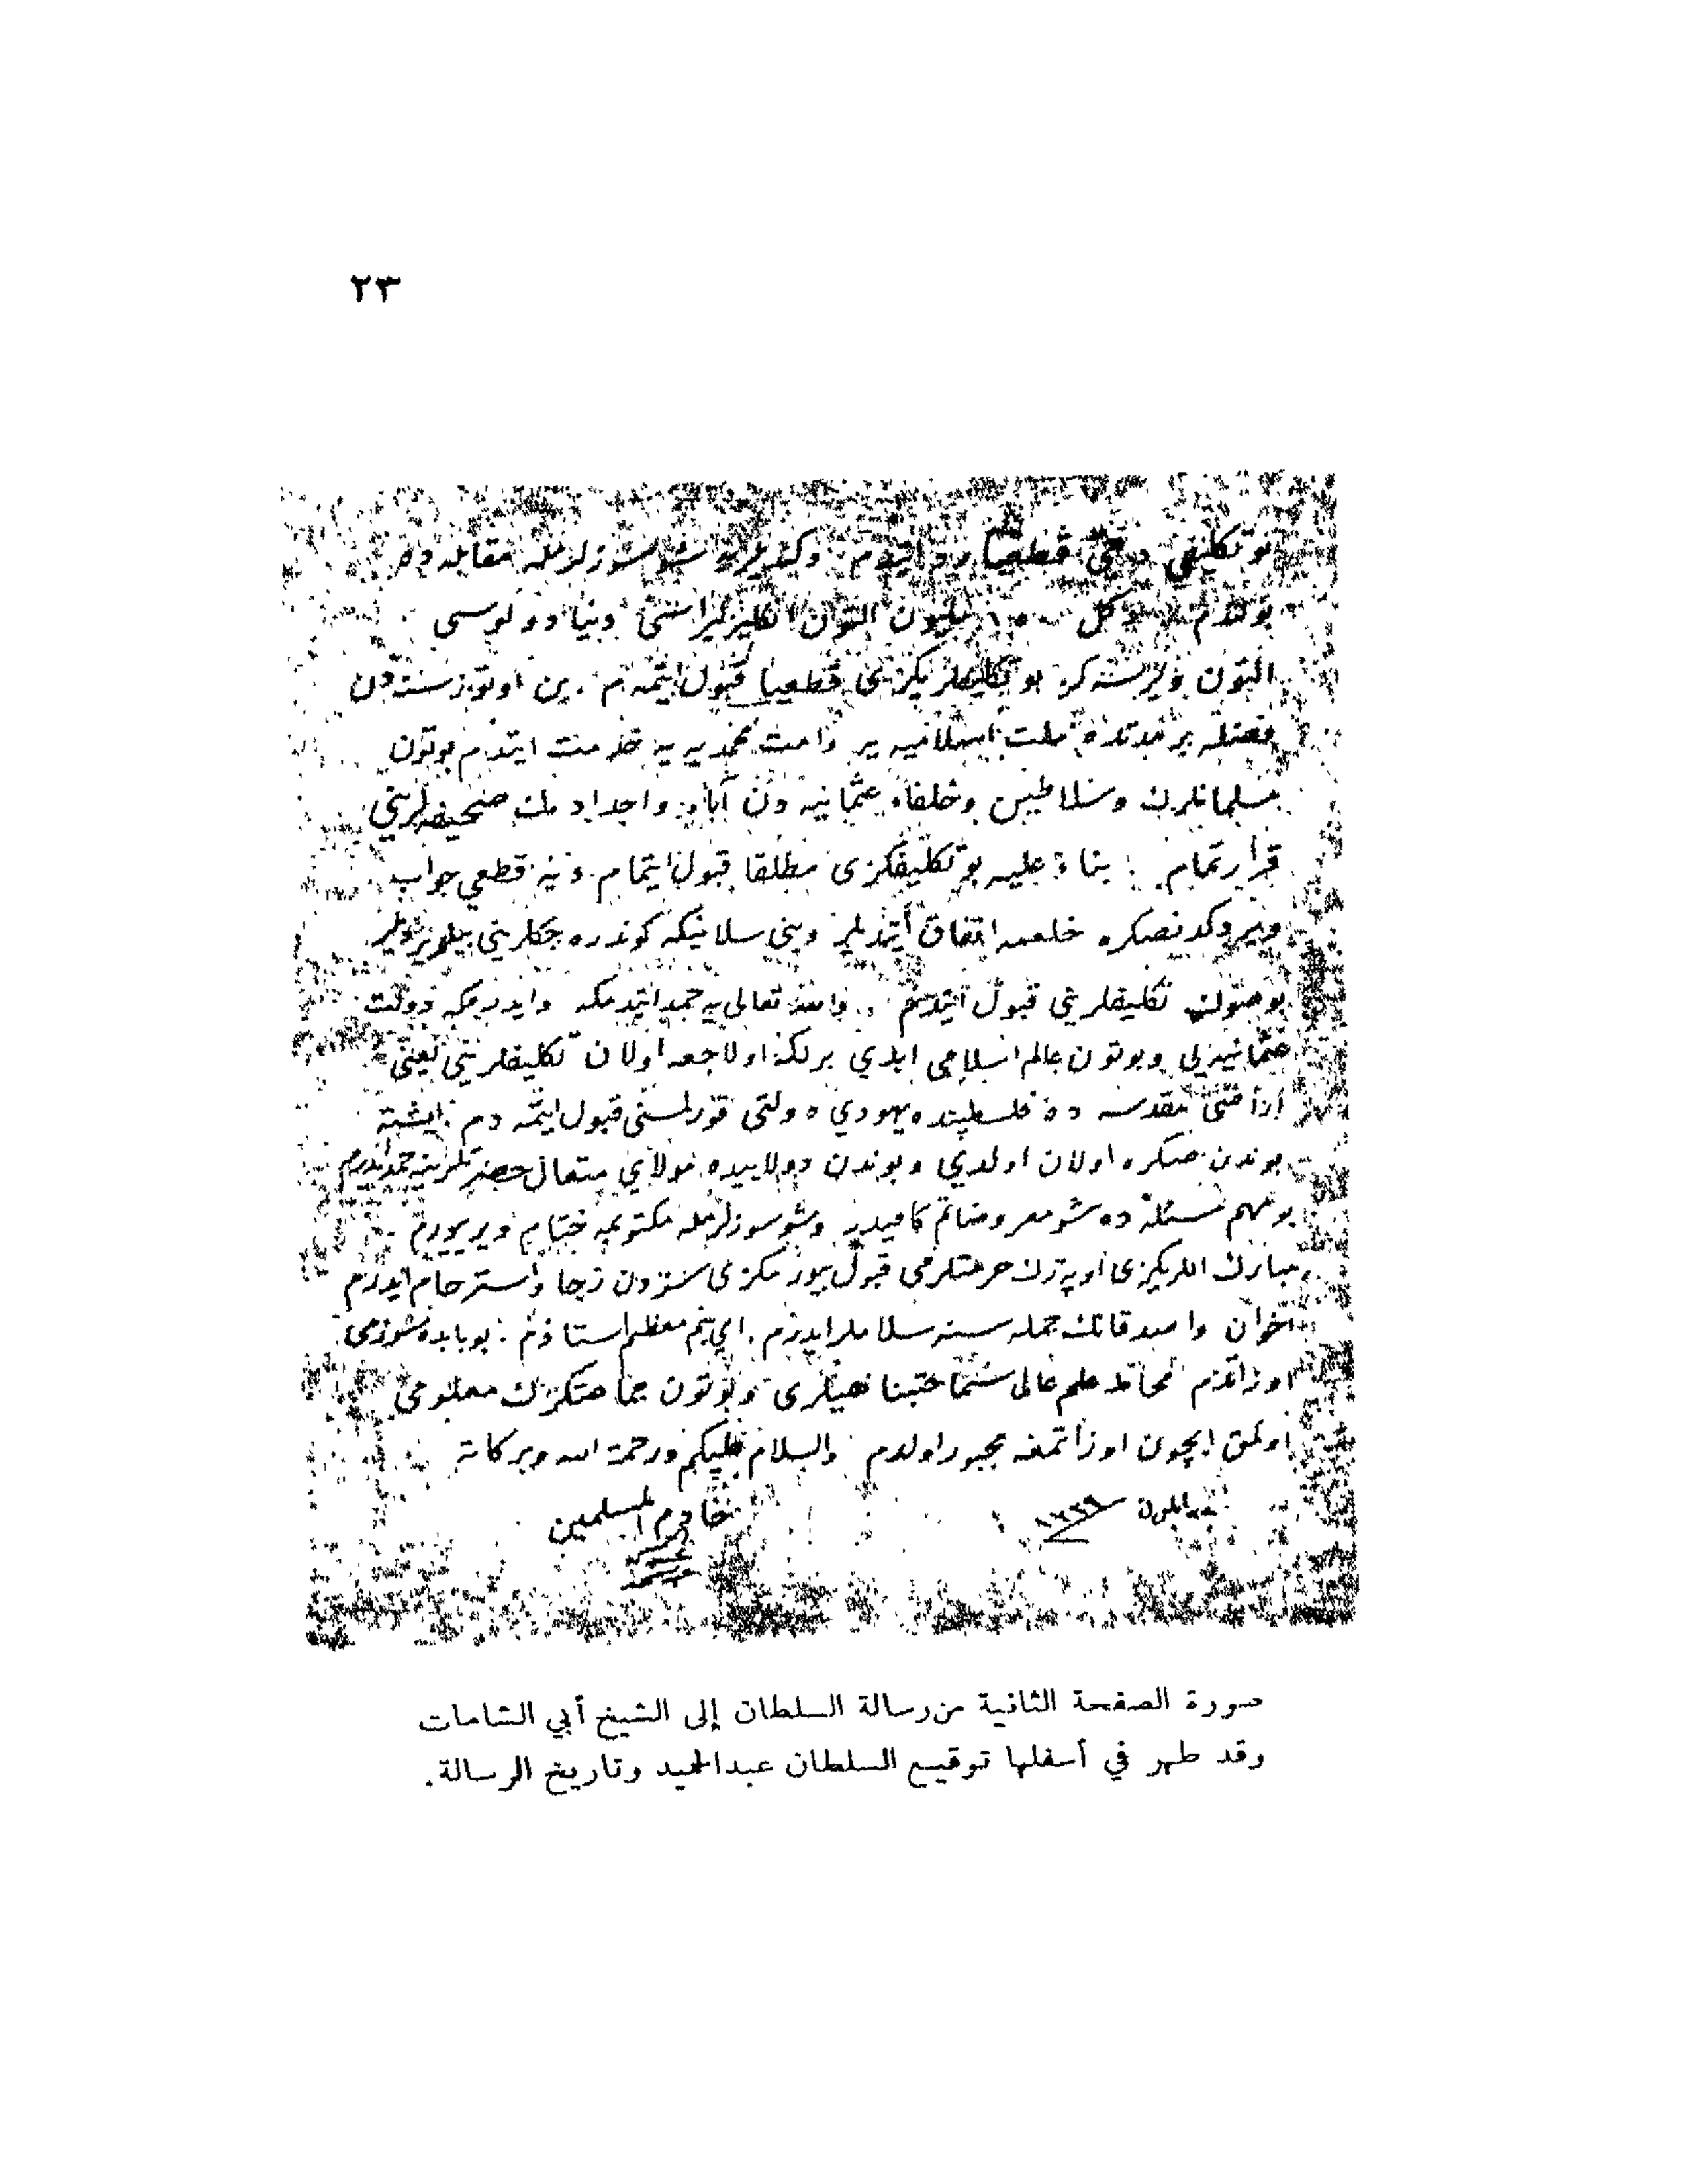 ٢٣
بو تكليفى دخى قطعيا رد ايتدم وكنديلرينه شو سوزلرمله مقابله ده
بولندم دكل ١٥٠ مليون التون انكليز ليراسنى دنيا دولوسى
التون ويرسه كز بو تكليفلريكزى قطعيا قبول ايتمه م . بن اوتوز سنه دن
فضله بر مدتده ملت اسلاميه يه وامت محمديه يه خدمت ايتدم بوتون
مسلمانلرك وسلاطين وخلفاء عثمانيه دن آباء واجدادمك صحيفه لرينى
قرارتمام . بناء عليه بو تكليفكزى مطلقا قبول ايتمام . دييه قطعي جواب
ويردكدنصكره خلعمه اتفاق ايتديلر وبنى سلانيكه كوندره جكلرينى بيلديرديلر
بو صوك تكليفلرينى قبول ايتدم . والله تعالى يه حمد ايتدمكه وايدرمكه دولت
عثمانيه يى وبوتون عالم اسلامى ابدي بر لكه اولاجعه اولان تكليفلرينى يعنى
اراضئ مقدسه ده فلسطينده يهودي دولتى قورلمسنى قبول ايتمه دم . ايشته
بوندن صكره اولان اولدي وبوندن دولاييده مولاي متعال حضرتلرينه حمد ايدرم
بو مهم مسئله ده شو معروضاتم كافيدر وشو سوزلرمله مكتوبمه ختام ويرييورم
مبارك اللريكزى اوپه رك حرمتلرمى قبول بيورمكزى سزدن رجا واسترحام ايدرم
اخوان واصدقانك جمله سنه سلاملر ايدرم . اي بنم معظم استاذم : بو بابده سوزمى
اوزاتدم محاط علم عالى سماحتپناهيلرى وبوتون جماعتكزك معلومى
اولمق ايچون اوزاتمغه مجبور اولدم والسلام عليكم ورحمة الله وبركاته
ايلول ١٣٢٩
خادم المسلمين
صورة الصفحة الثانية من رسالة السلطان إلى الشيخ أبي الشامات
وقد ظهر في أسفلها توقيع السلطان عبدالحميد وتاريخ الرسالة.